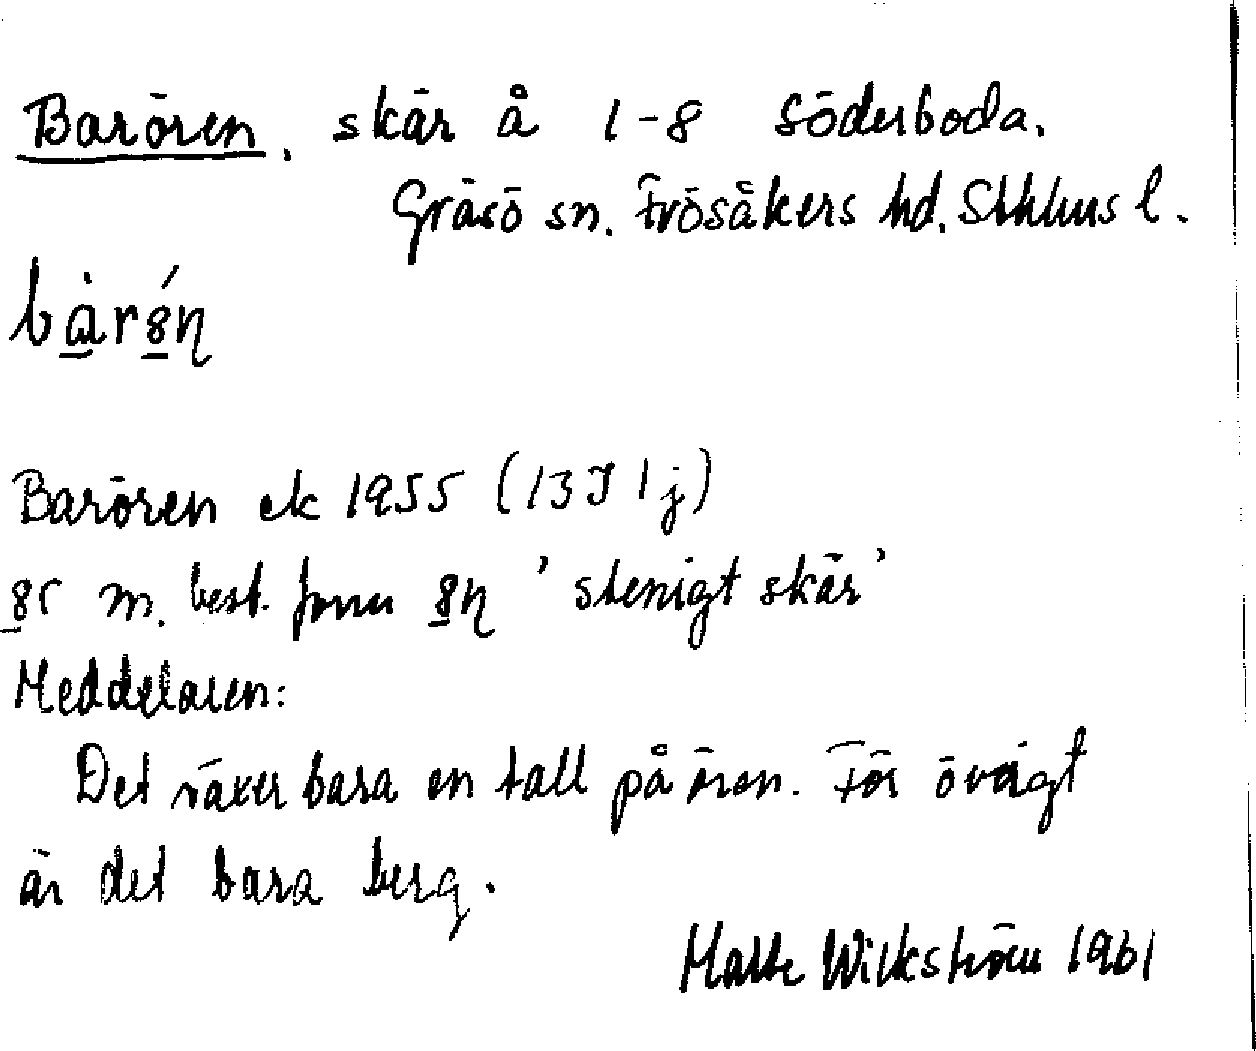 Barören, skär å 1-8 Söderboda.
Gräsö sn. Frösåkers hd. Sthlms l.
Barören ek 1955 (13 I 1 j)
m. best. form 'stenigt skär'
Meddelaren:
Det växer bara en tall på ören. För övrigt
är det bara berg.
Wikström 1961